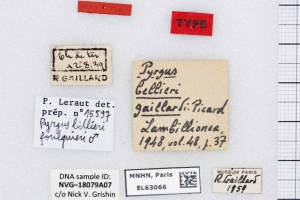 TYPE
12.8.39
R. GAILLARD
Pyrgus
bellieri
gaillardi: Picard
Lambillionea
1948, vol. 48, p. 37
P. Leraut det.
prép. n° 15597
Pyrgus bellieri
♂
DNA sample ID:
NVG-18079A07
c/o Nick V. Grishin
MNHN, Paris
EL63066
MUSEUM PARIS
R. Gaillard
1959